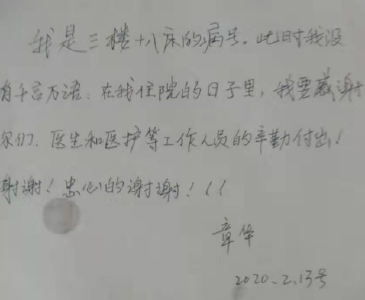 我是三楼十八床的病号。此时我没
有千言万语．在我住院的日子里，我要感谢
你们．医生和医护等工作人员的辛勤付出！
谢谢！忠心的谢谢！！！
章华
2020．2．13号